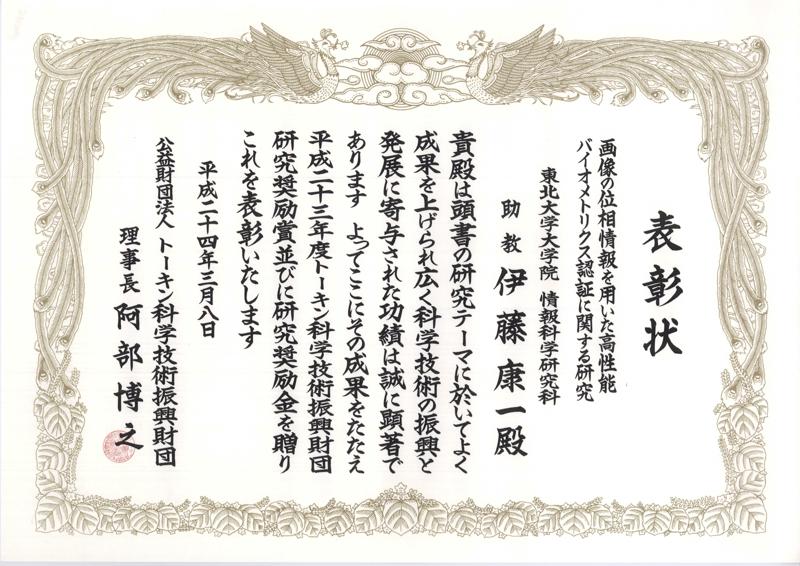 表彰状
画像の位相情報を用いた高性能
バイオメトリクス認証に関する研究
東北大学大学院 情報科学研究科
助教 伊藤康一殿
貴殿は頭書の研究テーマに於いてよく
成果を上げられ広く科学技術の振興と
発展に寄与された功績は誠に顕著で
あります よってここにその成果をたたえ
平成二十三年度トーキン科学技術振興財団
研究奨励賞並びに研究奨励金を贈り
これを表彰いたします
平成二十四年三月八日
公益財団法人 トーキン科学技術振興財団
理事長 阿部博之